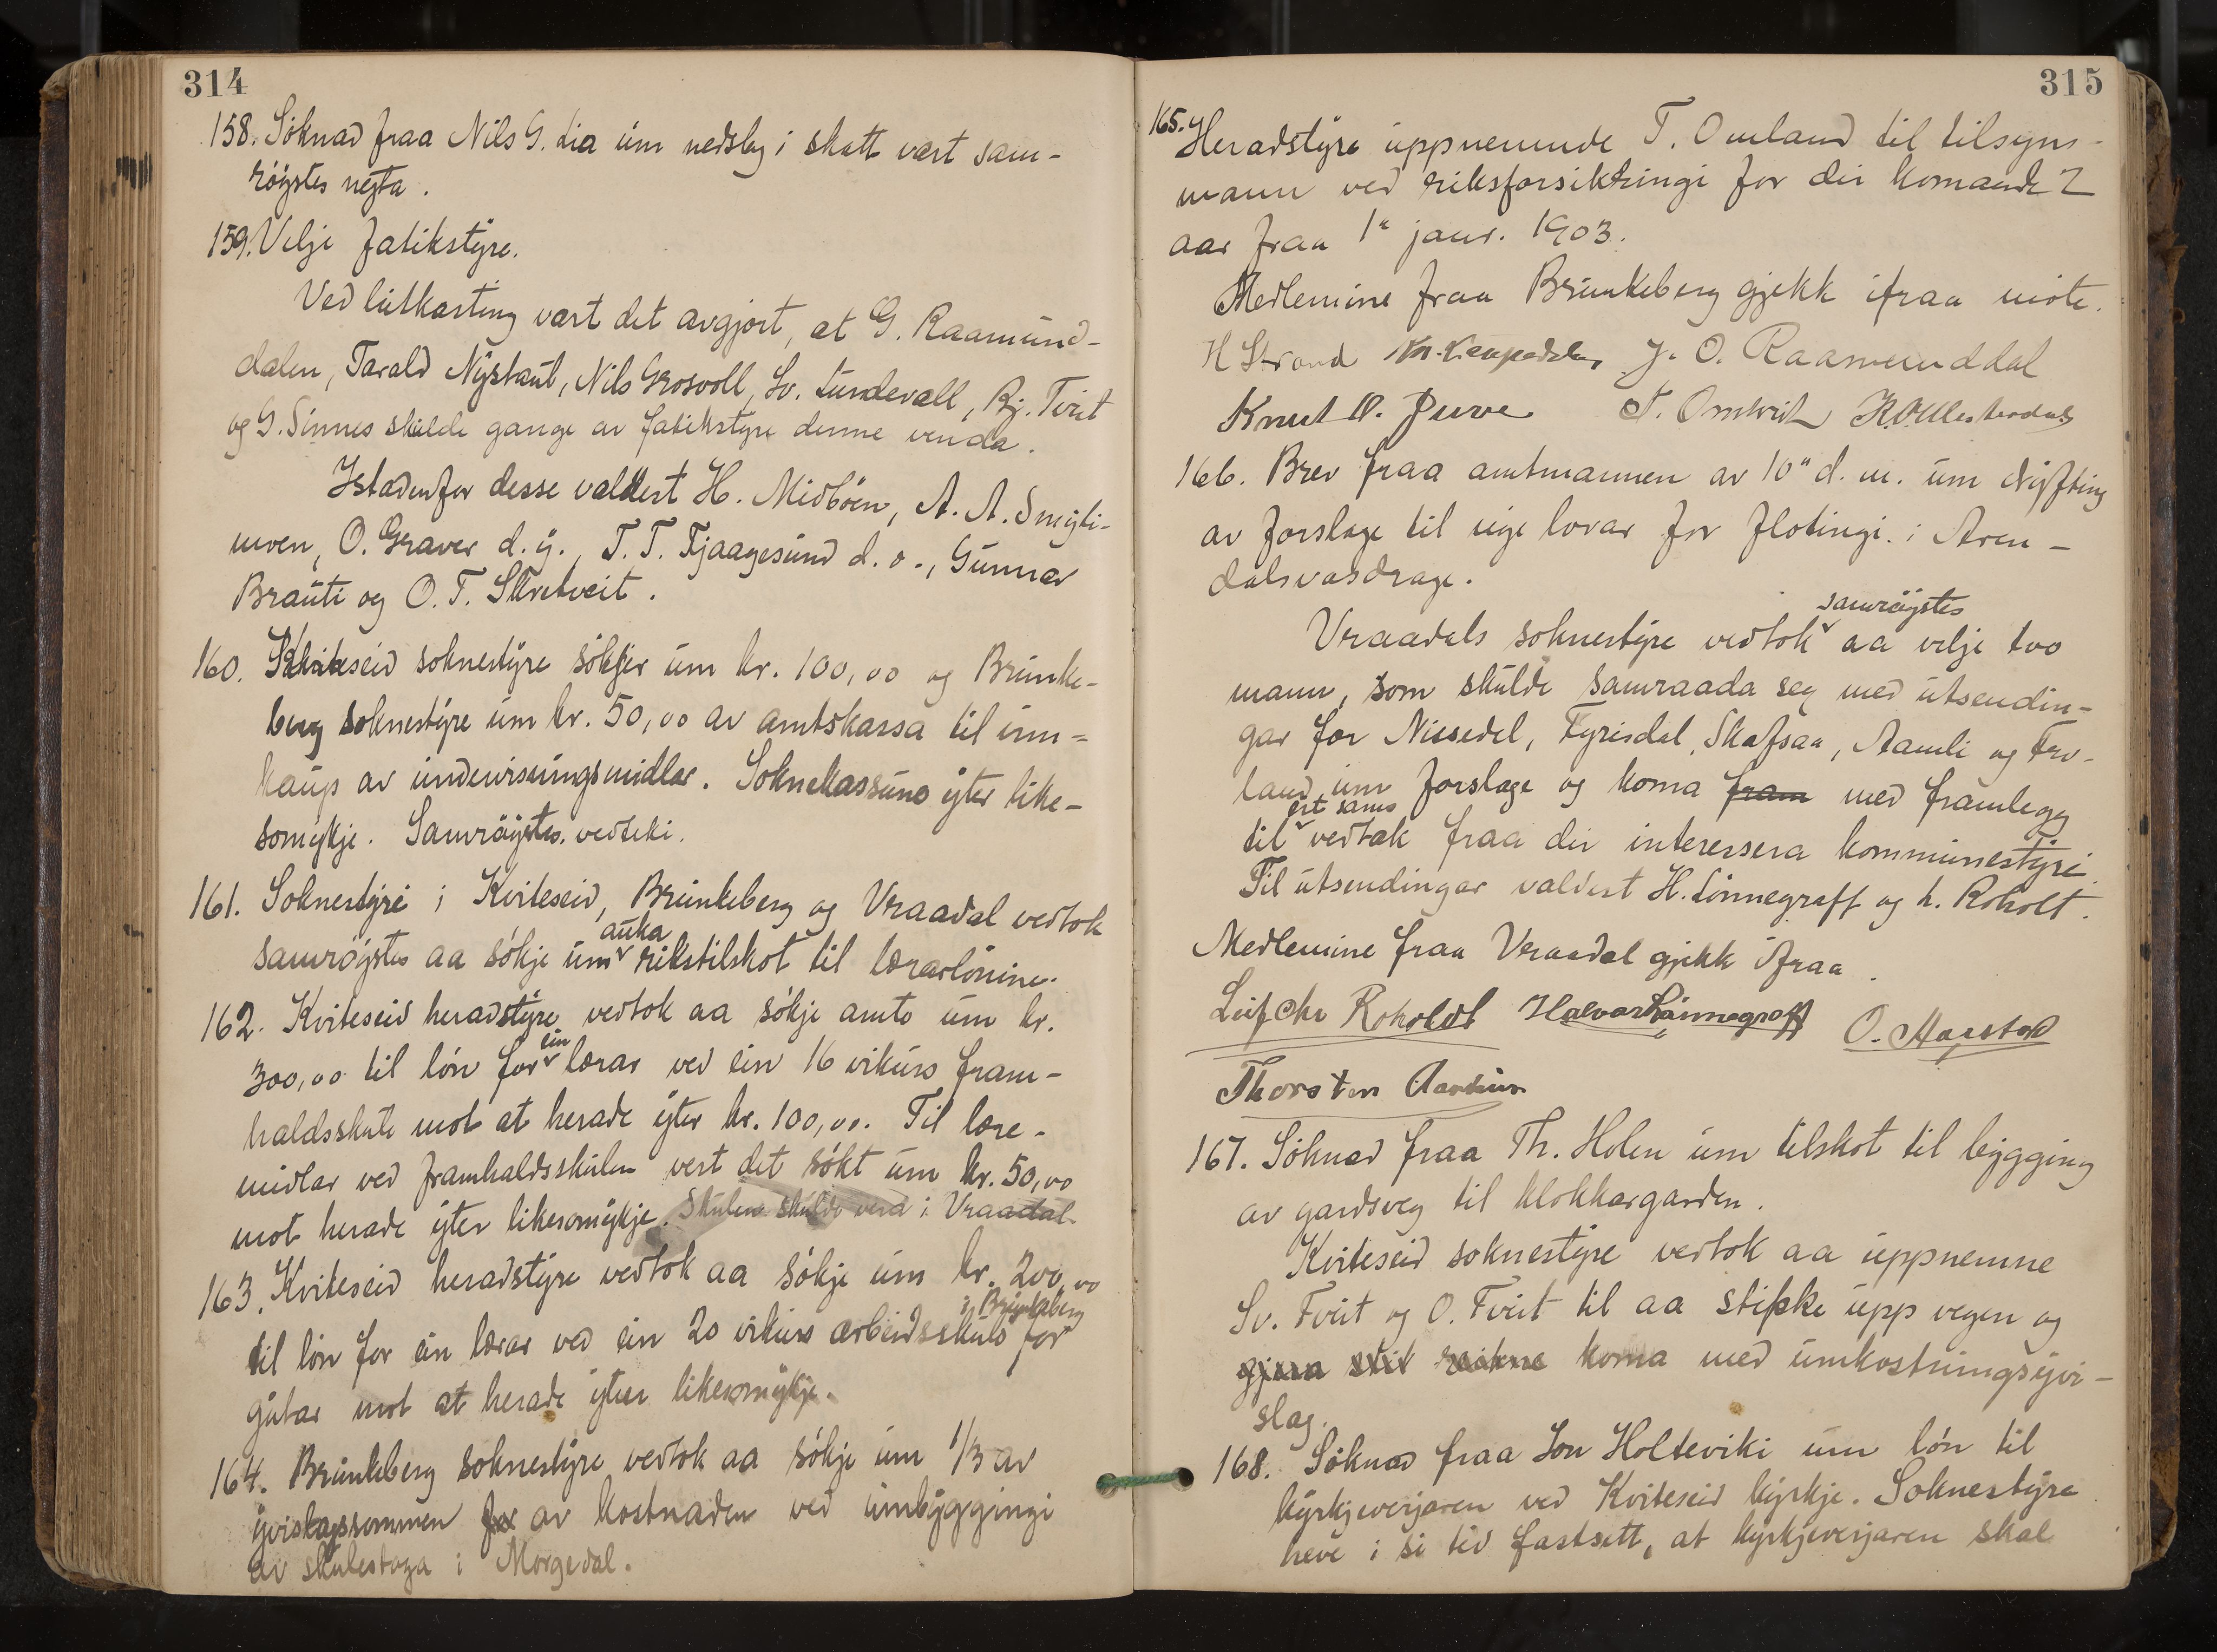 314
158. Söknad fraa Nils G. Lia um nedslag i skatt vart sam-
röystes negta.
159. Velje fatikstyre.
Ved lutkasting vart det avgjort, at G. Raamund-
dalen, Tarald Nystaul, Nils Grosvoll, Sv. Lundevall, Bj. Tveit
og G. Sinnes skulde gange av fatikstyre denne venda.
Istadenfor desse valdest H. Midböen, A. A. Smyli-
moen, O. Graver d. y., T. T. Fjaagesund d. o., Gunnar
Brauti og O. T. Skretveit.
160. Kviteseid soknestyre sökjer um kr. 100,00 og Brunke-
berg soknestyre um kr. 50,00 av amtskassa til inn-
kaup av undervisningsmidlar. Soknekassune yter like-
somykje. Samröystes vedteki.
161. Soknestyri i Kviteseid, Brunkeberg og Vraadal vedtok
auka
samröystes aa sökje um rikstilskot til lærarlönine.
162. Kviteseid heradstyre vedtok aa sökje amte um kr.
ein
300,00 til lön for lærar ved ein 16 vikurs fram-
haldsskule mot at herade yter kr. 100,00. Til lære-
midlar ved framhaldsskulen vert det sökt um kr. 50,00
mot herade yter likesomykje. Skulen skulde vera i Vraadal.
163. Kviteseid heradstyre vedtok aa sökje um kr. 200,00
i Brunkeberg
til lön for ein lærar ved ein 20 vikurs arbeidsskule for
gutar mot at herade yter likesomykje.
164. Brunkeberg soknestyre vedtok aa sökje um 1/3 av
yvislagssummen for av kostnaden ved umbyggingi
av skulestoga i Morgedal.
315
165. Heradstyre uppnemnde T. Omland til tilsyns-
mann ved riksforsikringi for dei komande 2
aar fraa 1" janr. 1903.
Medlemine fraa Brunkeberg gjekk ifraa möte.
H Strand J. O. Raamunddal
Knut O. T. Omtveit
166. Brev fraa amtmannen av 10" d. m. um dryfting
av forslage til nye lovar for flotingi i Aren-
dalsvasdrage.
samröystes
Vraadals soknestyre vedtok aa velje tvo
mann, som skulde samraada seg med utsendin-
gar for Nissedal, Fyrisdal, Skafsaa, Aamli og Fro-
land um forslage og koma fram med framlegg
eit sams
til vedtak fraa dei interessera kommunestyri.
Til utsendingar valdest H. Lönnegraff og L. Roholt.
Medlemine fraa Vraadal gjekk ifraa.
Leif Chr Roholdt Halvor Lønnegraff O. Haystad
Thorsten
167. Söknad fraa Th. Holen um tilskot til bygging
av gardsveg til klokkargarden.
Kviteseid soknestyre vedtok aa uppnemne
Sv. Tveit og O. Tveit til aa stikke upp vegen og
gjera koma med umkostningsyvi-
slag.
168. Söknad fraa Jon Holteviki um lön til
kyrkjeverjaren ved Kviteseid kyrkje. Soknestyre
heve i si tid fastsett, at kyrkjeverjaren skal